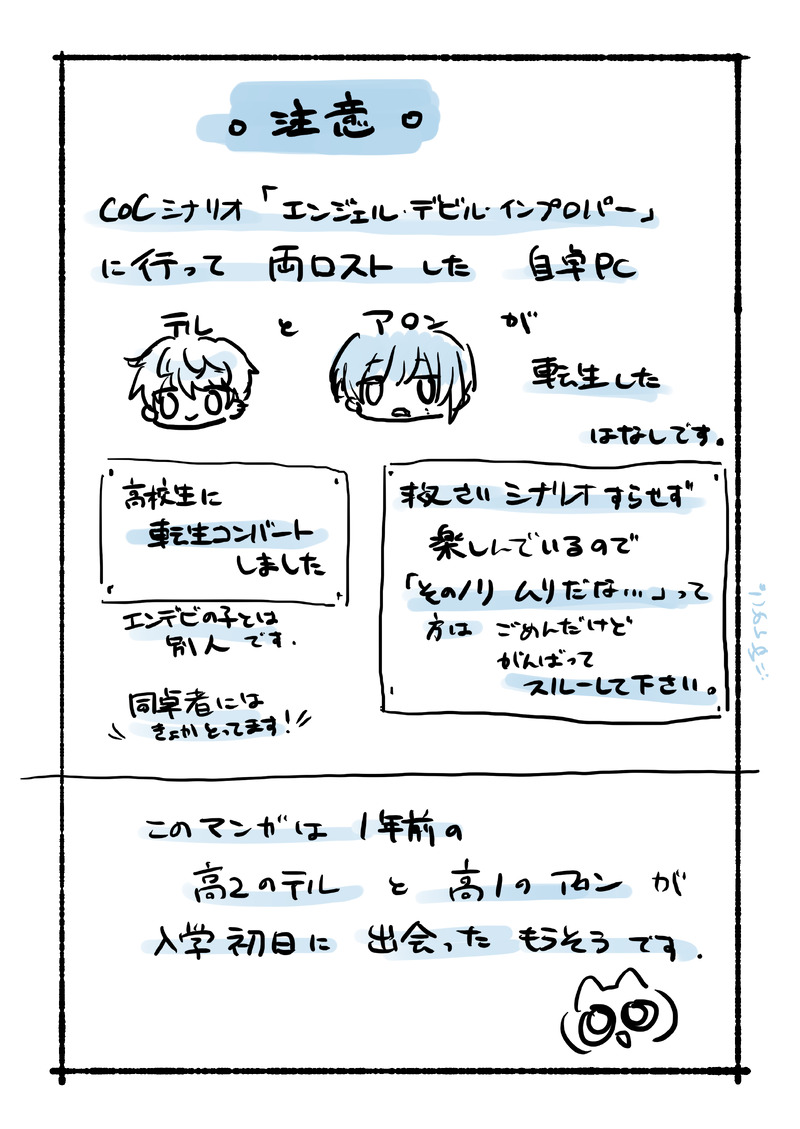 注意
CoCシナリオ「エンジェル・デビル・インプロパー」
に行って 両ロスト した 自宅PC
テル と アロン が
転生した
はなしです。
高校生に
転生コンバート
しました
エンデビの子とは
別人です.
同卓者には
きょかとってます!
救えない シナリオ すらせず
楽しんでいるので
「そのノリ ムリだな…」って
方は ごめんだけど
がんばって
スルーして下さい。
このマンガは 1年前の
高2のテル と 高1の アロン が
入学初日に 出会った もうそう です.